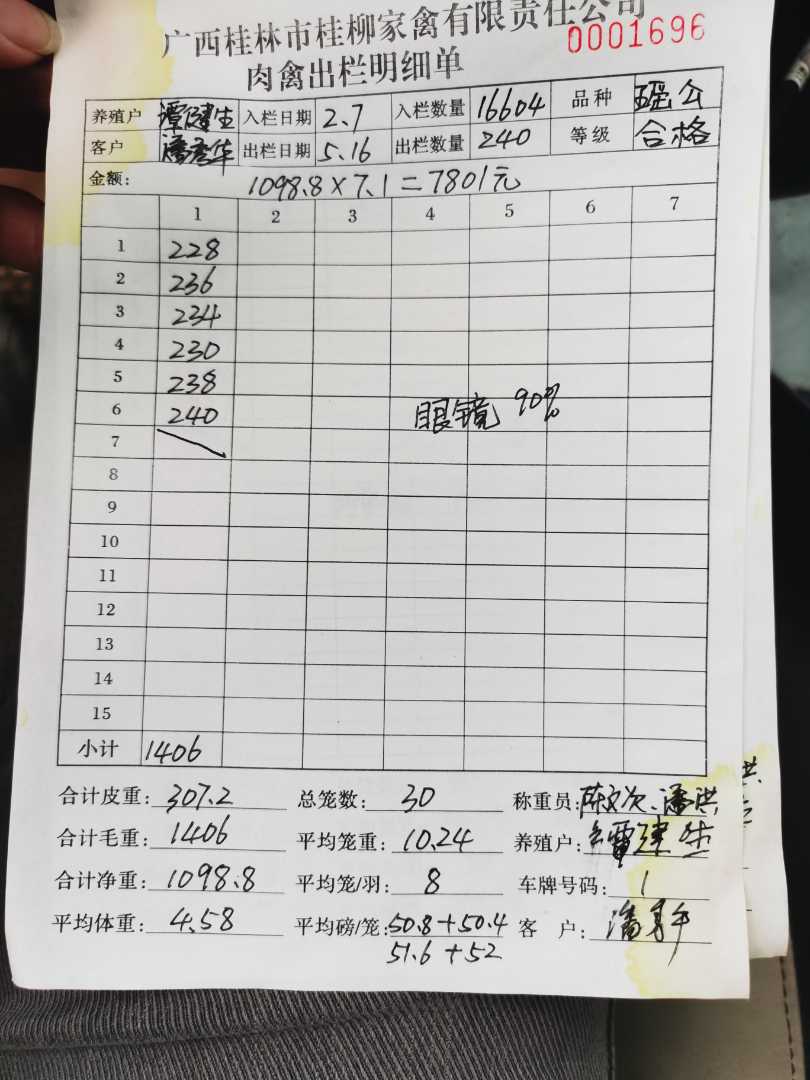 广西桂林市桂柳家禽有限责任公司
0001696
肉禽出栏明细单
养殖户 谭健生 入栏日期 2.7 入栏数量 16604 品种 瑶公
客户 潘秀华 出栏日期 5.16 出栏数量 240 等级 合格
金额: 1098.8×7.1=7801元
1 2 3 4 5 6 7
1 228
2 236
3 234
4 230
5 238
6 240 眼镜 90%
7
8
9
10
11
12
13
14
15
小计 1406
合计皮重: 307.2 总笼数: 30 称重员: 潘洪
合计毛重: 1406 平均笼重: 10.24 养殖户:
合计净重: 1098.8 平均笼/羽: 8 车牌号码: 1
平均体重: 4.58 平均磅/笼: 50.8+50.4 客户:
51.6+52